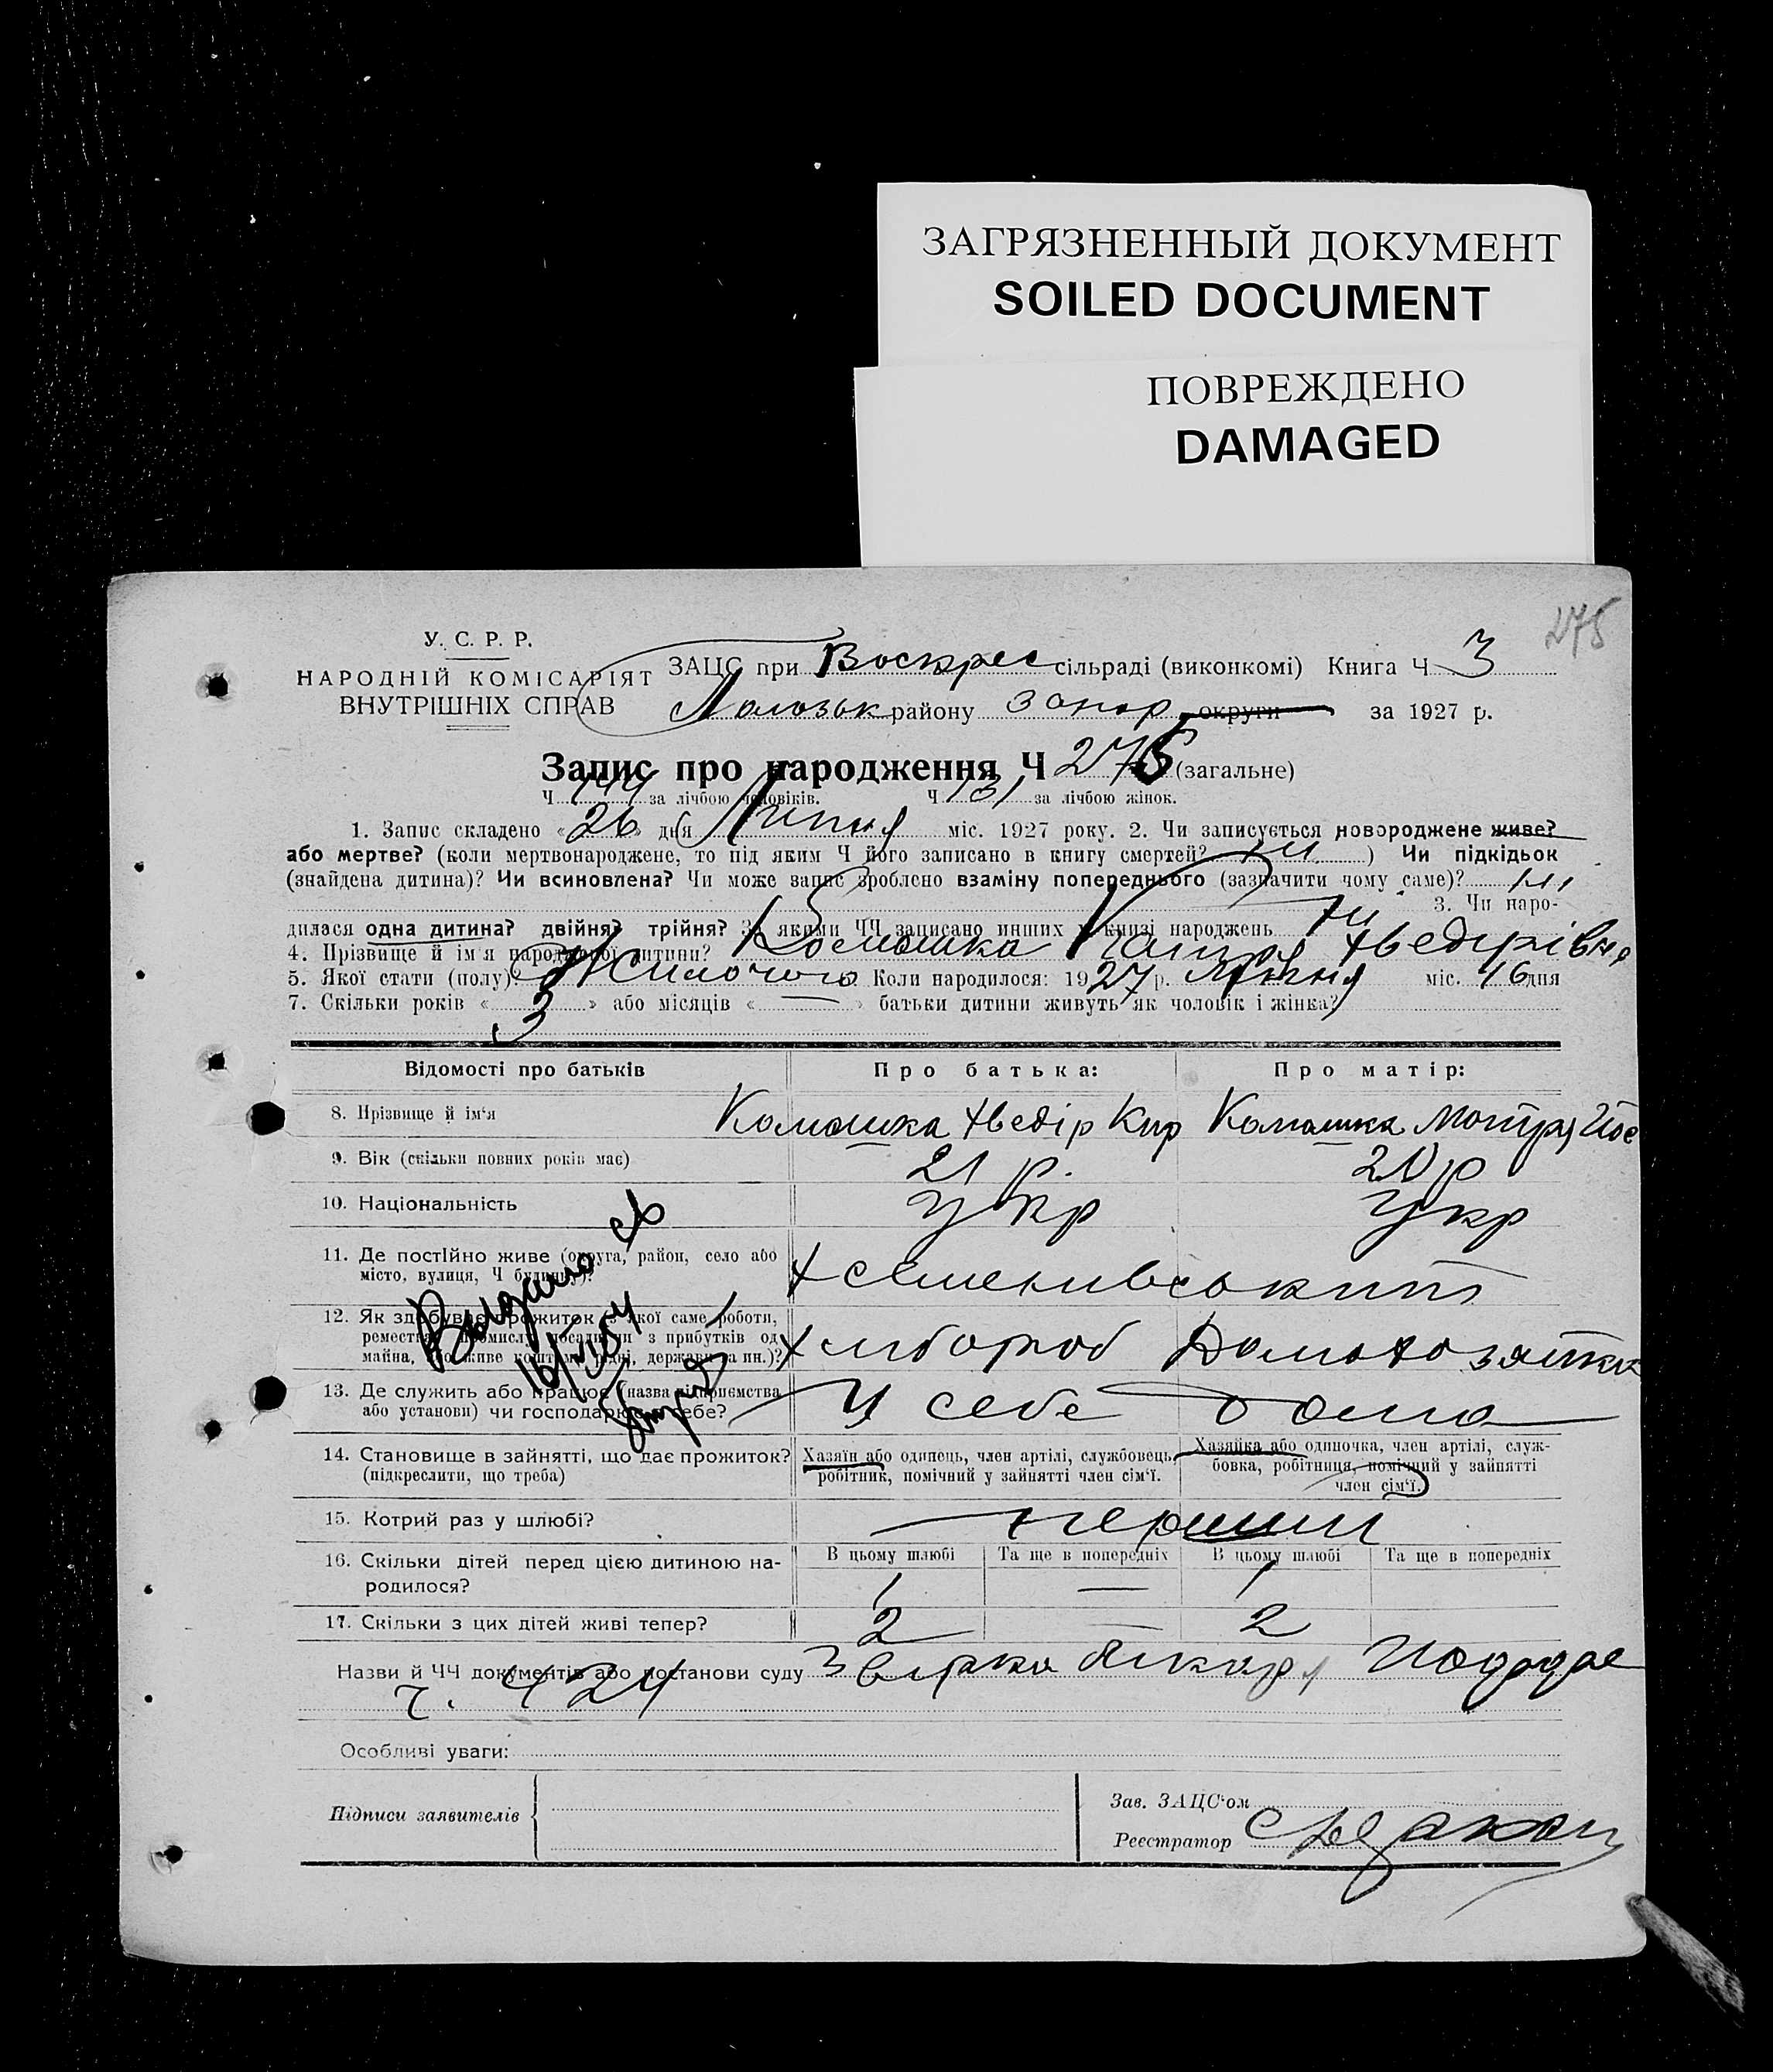 ЗАГРЯЗНЕННЫЙ ДОКУМЕНТ
SOILED DOCUMENT
ПОВРЕЖДЕНО
DAMAGED
275
У. С. Р. Р.
НАРОДНІЙ КОМІСАРІЯТ
ВНУТРІШНІХ СПРАВ
ЗАЦС при Воскрес сільраді (виконкомі) Книга Ч 3
району Запор округи за 1927 р.
Запис про народження Ч 275 (загальне)
Ч 144 за лічбою чоловіків. Ч 131 за лічбою жінок.
1. Запис складено «26» дня Липня міс. 1927 року. 2. Чи записується новороджене живе?
або мертве? (коли мертвонароджене, то під яким Ч його записано в книгу смертей? ни ) Чи підкідьок
(знайдена дитина)? Чи всиновлена? Чи може запис зроблено взаміну попереднього (зазначити чому саме)? ни
3. Чи наро-
дилася одна дитина? двійня? трійня? За якими ЧЧ записано инших у книзі народжень ни
4. Прізвище й ім'я народженої дитини?
5. Якої стати (полу) Жиночого Коли народилося: 1927 р. міс. 16 дня
7. Скільки років « 3 » або місяців « — » батьки дитини живуть як чоловік і жінка?
Відомості про батьків Про батька: Про матір:
8. Прізвище й ім'я Камашка Хведір Кир Камашка Мотря Йос
9. Вік (скільки повних років має) 21 р. 20 р
10. Національність Укр Укр
11. Де постійно живе (округа, район, село або
місто, вулиця, Ч будинку)? х Семенивський
12. Як здобуває прожиток (з якої саме роботи,
ремества, промислу, посади чи з прибутків од
майна, або живе коштом рідні, держави та ин.)? хлибороб
13. Де служить або працює (назва підприємства
або установи) чи господарює в себе? У себе дома
Видано св
14. Становище в зайнятті, що дає прожиток?
(підкреслити, що треба)
Хазяїн або одинець, член артілі, службовець,
робітник, помічний у зайнятті член сім'ї.
Хазяйка або одиночка, член артілі, служ-
бовка, робітниця, помічний у зайнятті
член сім'ї.
15. Котрий раз у шлюбі? перший
16. Скільки дітей перед цією дитиною на-
родилося?
В цьому шлюбі Та ще в попередніх В цьому шлюбі Та ще в попередніх
1 — 1
17. Скільки з цих дітей живі тепер? 2 — 2
Назви й ЧЧ документів або постанови суду
ч. 424
Особливі уваги:
Підписи заявителів
Зав. ЗАЦС'ом
Реєстратор